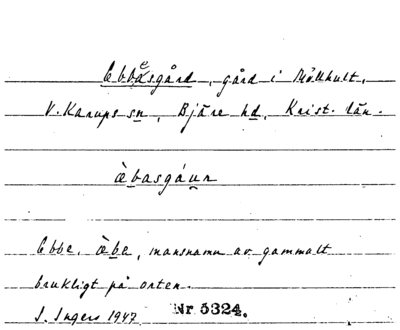 Ebbesgård, gård i Möllhult,
V. Karups sn, Bjäre hd, Krist. län.
àbasgáun
Ebbe, àbe, mansnamn av gammalt
brukligt på orten.
I. Ingers 1947 Nr 5324.